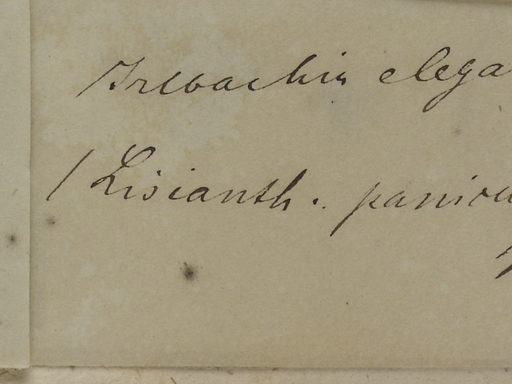 Irlbachia elega
/ Lisianth. panicu